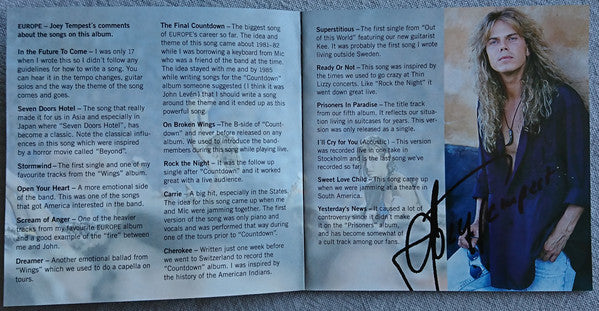 EUROPE – Joey Tempest's comments
about the songs on this album.
In the Future To Come – I was only 17
when I wrote this so I didn't follow any
guidelines for how to write a song. You
can hear it in the tempo changes, guitar
solos and the way the theme of the song
comes and goes.
Seven Doors Hotel – The song that really
made it for us in Asia and especially in
Japan where "Seven Doors Hotel", has
become a classic. Note the classical influ-
ences in this song which were inspired
by a horror movie called "Beyond".
Stormwind – The first single and one of my
favourite tracks from the "Wings" album.
Open Your Heart – A more emotional side
of the band. This was one of the songs
that got America interested in the band.
Scream of Anger – One of the heavier
tracks from my favourite EUROPE album
and a good example of the "fire" between
me and John.
Dreamer – Another emotional ballad from
"Wings" which we used to do a capella on
tours.
The Final Countdown – The biggest song
of EUROPE's career so far. The idea and
theme of this song came about 1981-82
while I was borrowing a keyboard from Mic
who was a friend of the band at the time.
The idea stayed with me and by 1985
while writing songs for the "Countdown"
album someone suggested (I think it was
John Levén) that I should write a song
around the theme and it ended up as this
powerful song.
On Broken Wings – The B-side of "Count-
down" and never before released on any
album. We used to introduce the band-
members during this song while playing live.
Rock the Night – It was the follow up
single after "Countdown" and it worked
great with a live audience.
Carrie – A big hit, especially in the States.
The idea for this song came up when me
and Mic were jamming together. The first
version of the song was only piano and
vocals and was performed that way during
one of the tours prior to "Countdown".
Cherokee – Written just one week before
we went to Switzerland to record the
"Countdown" album. I was inspired by
the history of the American Indians.
Superstitious – The first single from "Out
of this World" featuring our new guitarist
Kee. It was the first possible song I wrote
living outside Sweden.
Ready Or Not – This song was inspired
by the times we used to go crazy at Thin
Lizzy concerts. Like "Rock the Night" it
went down great live.
Prisoners In Paradise – The title track
from our fifth album. It reflects our situa-
tion living in suitcases for years. This ver-
sion was only released as a single.
I'll Cry for You (Acoustic) – This version
was recorded live in one take in
Stockholm and is the last song we've
recorded so far.
Sweet Love Child – This song came up
when we were jamming at a theatre in
South America.
Yesterday's News – It caused a lot of
controversy since it didn't make it
on the "Prisoners" album,
and has become somewhat of
a cult track among our fans.